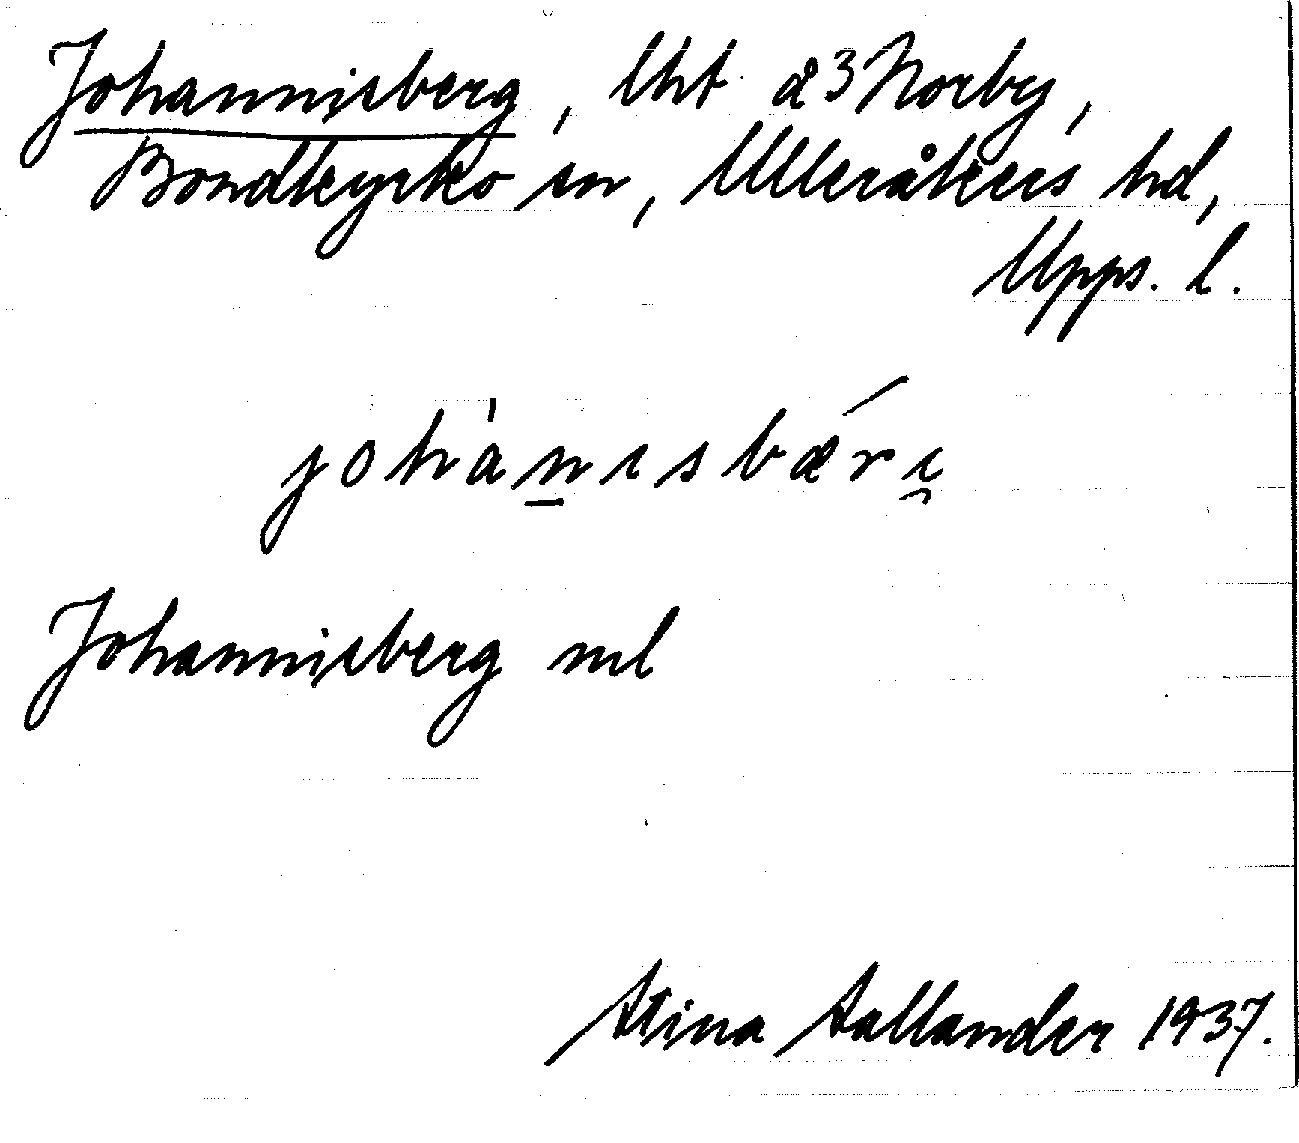 Johannisberg, lht å 3 Norby,
Bondkyrko sn, Ulleråkers hd,
Upps. l.
johànisbǽri̯
Johannisberg ml
Stina Sallander 1937.